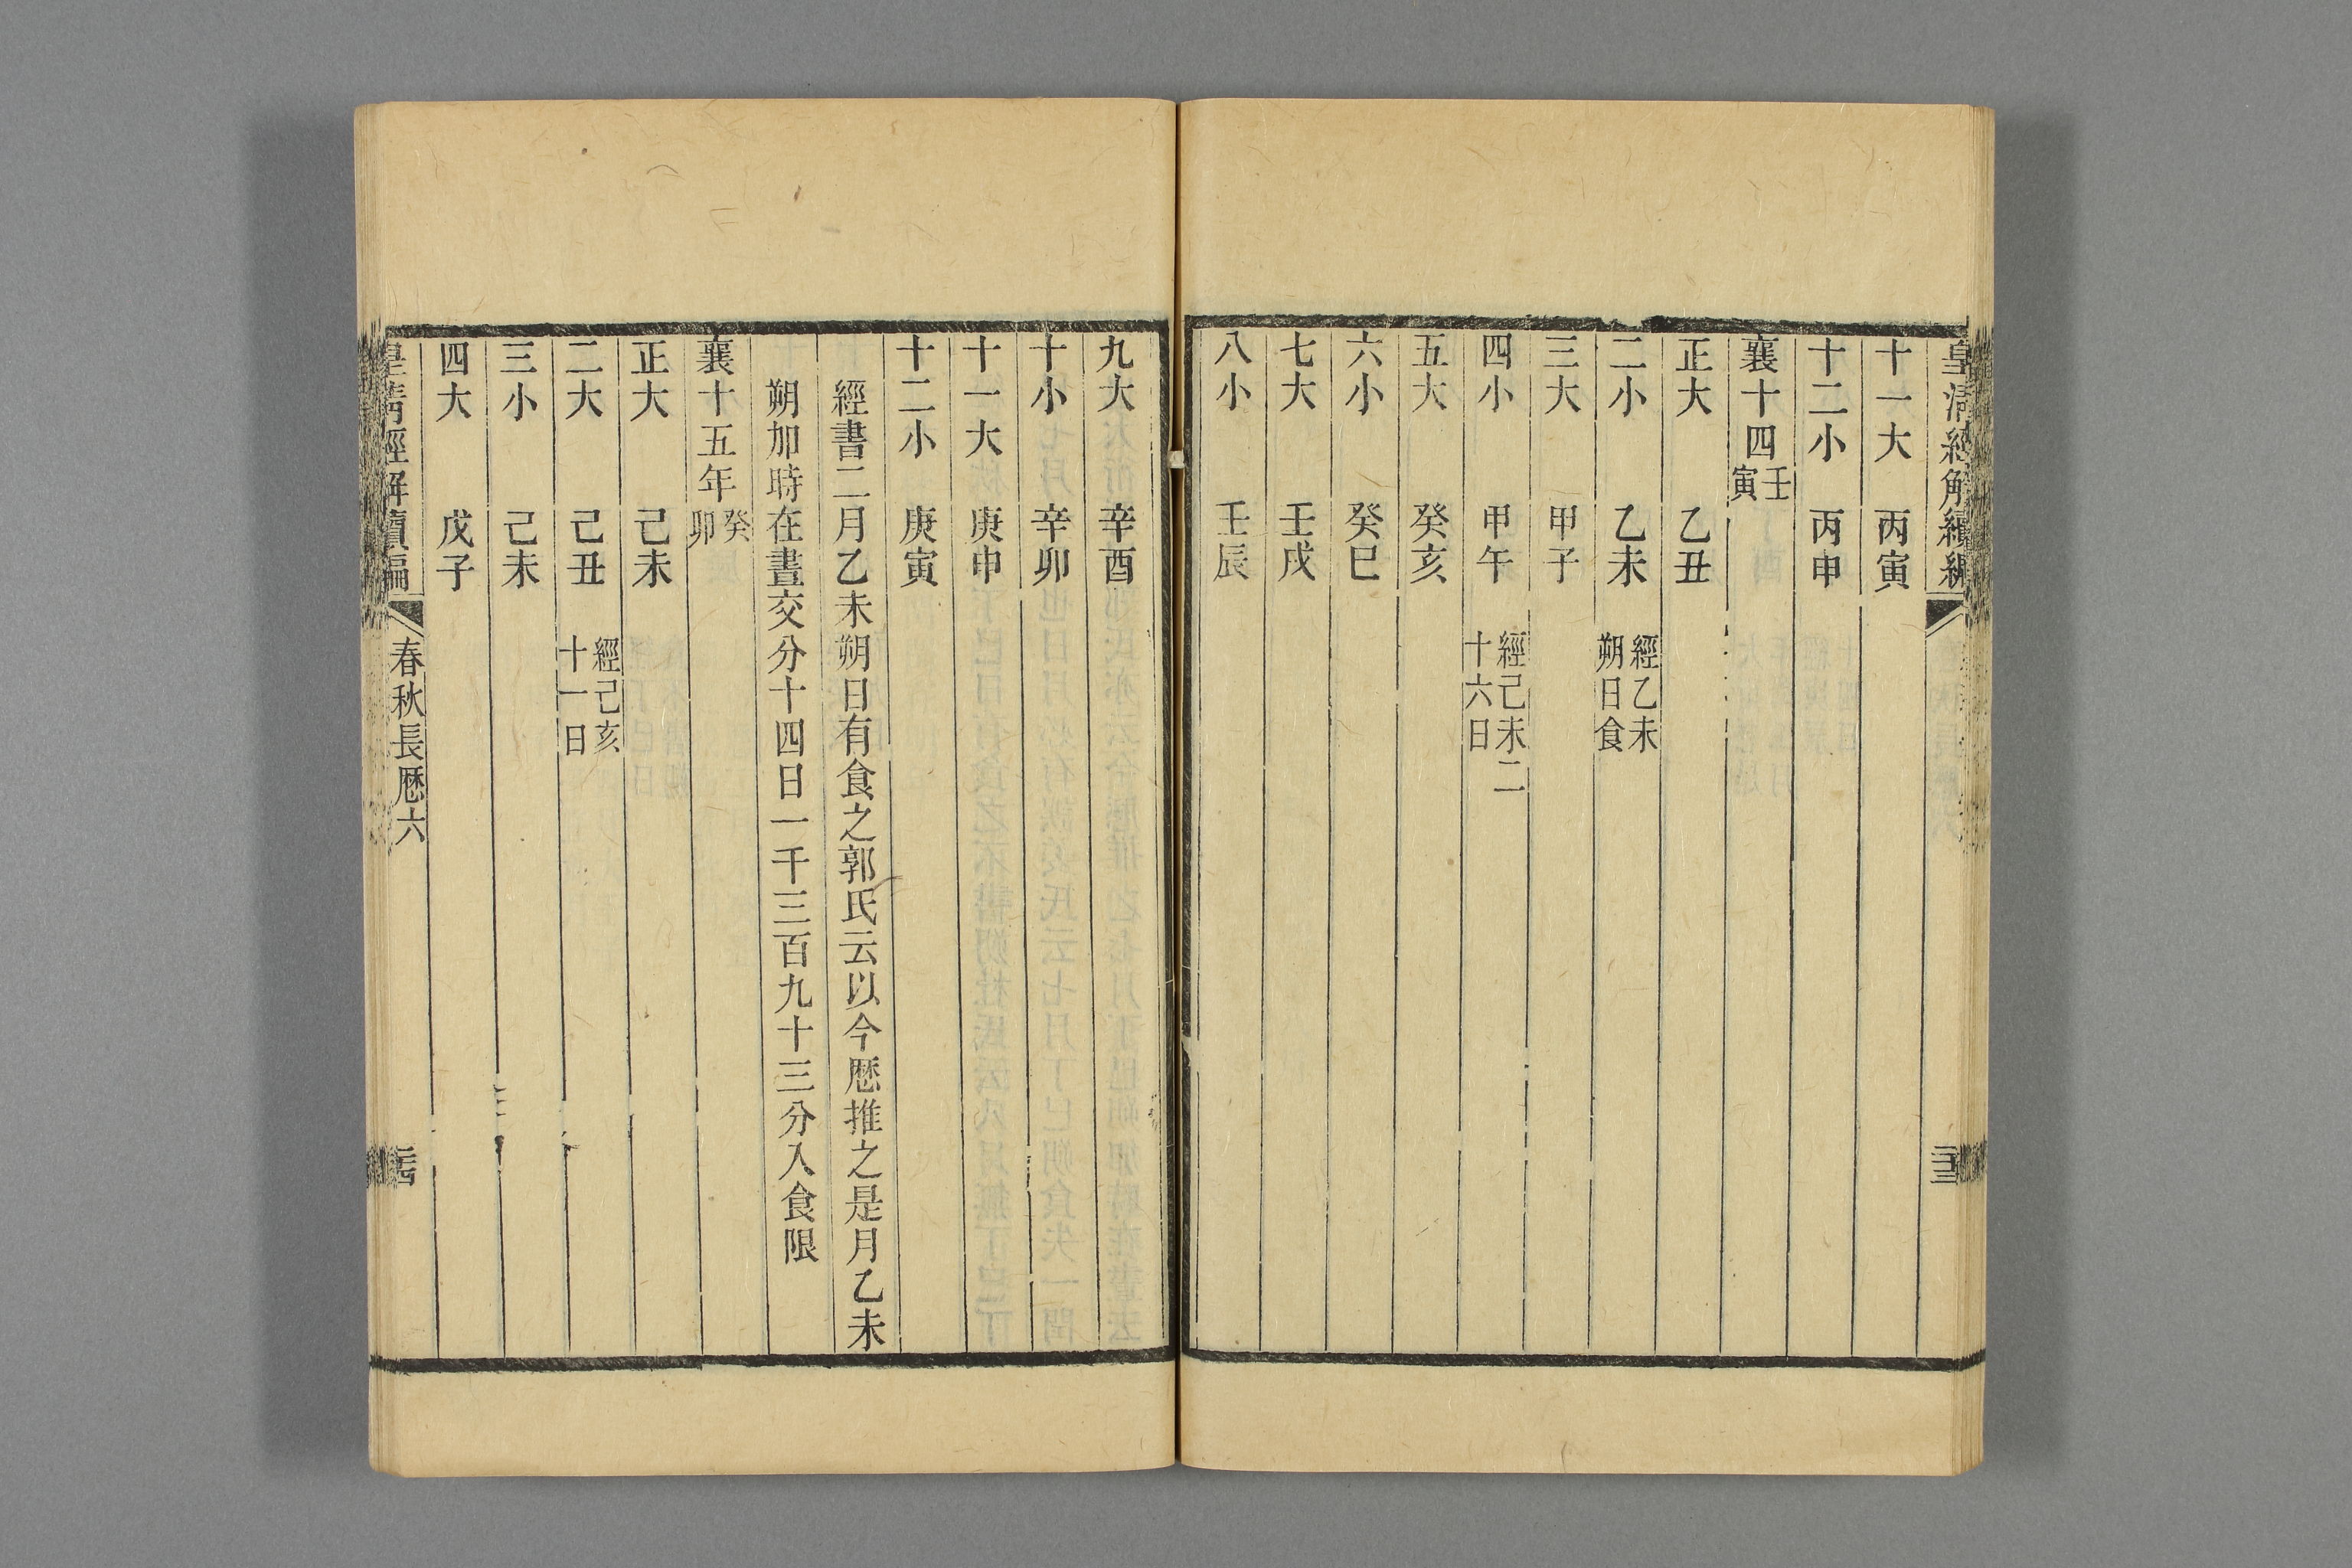 皇清經解續編
十一大 丙寅
十二小 丙申
襄十四壬寅
正大 乙丑
二小 乙未 經乙未朔日食
三大 甲子
四小 甲午 經己未二十六日
五大 癸亥
六小 癸巳
七大 壬戌
八小 壬辰
九大 辛酉
十小 辛卯
十一大 庚申
十二小 庚寅
經書二月乙未朔日有食之郭氏云以今厯推之是月乙未
朔加時在晝交分十四日一千三百九十三分入食限
襄十五年癸卯
正大 己未
二大 己丑 經己亥十一日
三小 己未
四大 戊子
皇清經解續編 春秋長厯六